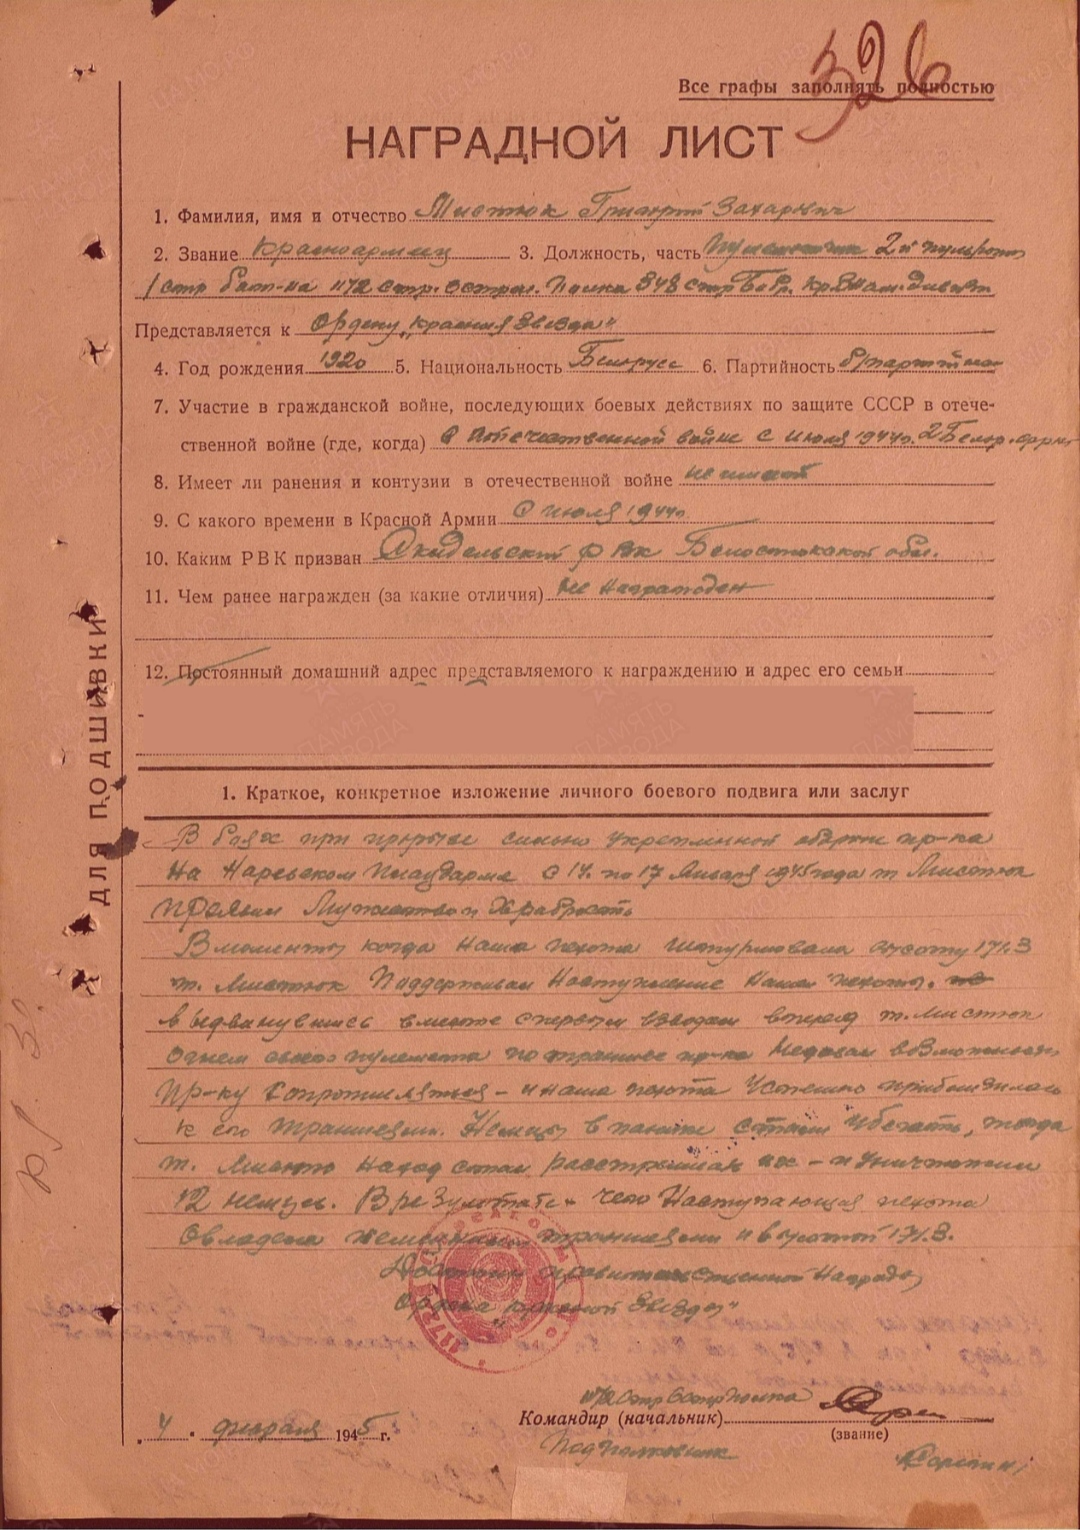 326
Все графы заполнять полностью
НАГРАДНОЙ ЛИСТ
1. Фамилия, имя и отчество Мистюк Григорий Захарович
2. Звание Красноармеец 3. Должность, часть Пулеметчик 2й пульроты
1 стр бат-на 1172 стр. Остров. Полка 348 стр Бобр. Кр Знам. Дивиз
Представляется к Ордену „Красная Звезда"
4. Год рождения 1920 5. Национальность Белорусс 6. Партийность б/партийной
7. Участие в гражданской войне, последующих боевых действиях по защите СССР в отече-
ственной войне (где, когда) в Отечественной войне с июля 1944г. 2 Белор. фронт
8. Имеет ли ранения и контузии в отечественной войне не имеет
9. С какого времени в Красной Армии С июля 1944г
10. Каким РВК призван Скидельский РВК Белостокской обл.
11. Чем ранее награжден (за какие отличия) Не Награжден
12. Постоянный домашний адрес представляемого к награждению и адрес его семьи
ДЛЯ ПОДШИВКИ
1. Краткое, конкретное изложение личного боевого подвига или заслуг
В боях при прорыве сильно укрепленной обороны пр-ка
На Наревском Плацдарме с 14. по 17 Января 1945 года т Мистюк
проявил Мужество и Храбрость
В моменты когда наша пехота штурмовала высоту 171.3
т. Мистюк Поддерживал Наступление Нашей пехоты.
выдвинувшись вместе с первым взводом вперед т. Мистюк
Огнем своего пулемета по траншее пр-ка Недавал возможности
Пр-ку Сопротивляться - и наша пехота Успешно приблизилась
к его траншеям. Немцы в панике стали убегать, тогда
т. Мистюк стал расстреливал их - и уничтожил
12 немцев. В результате - чего Наступающая пехота
Овладела немецкими траншеями и высотой 171.3.
Достоин правительственной Награды
Ордена „Красной Звезды"
1172 стр Остр Полка
Командир (начальник)
(звание)
Подполковник
4 . февраля 1945 г.